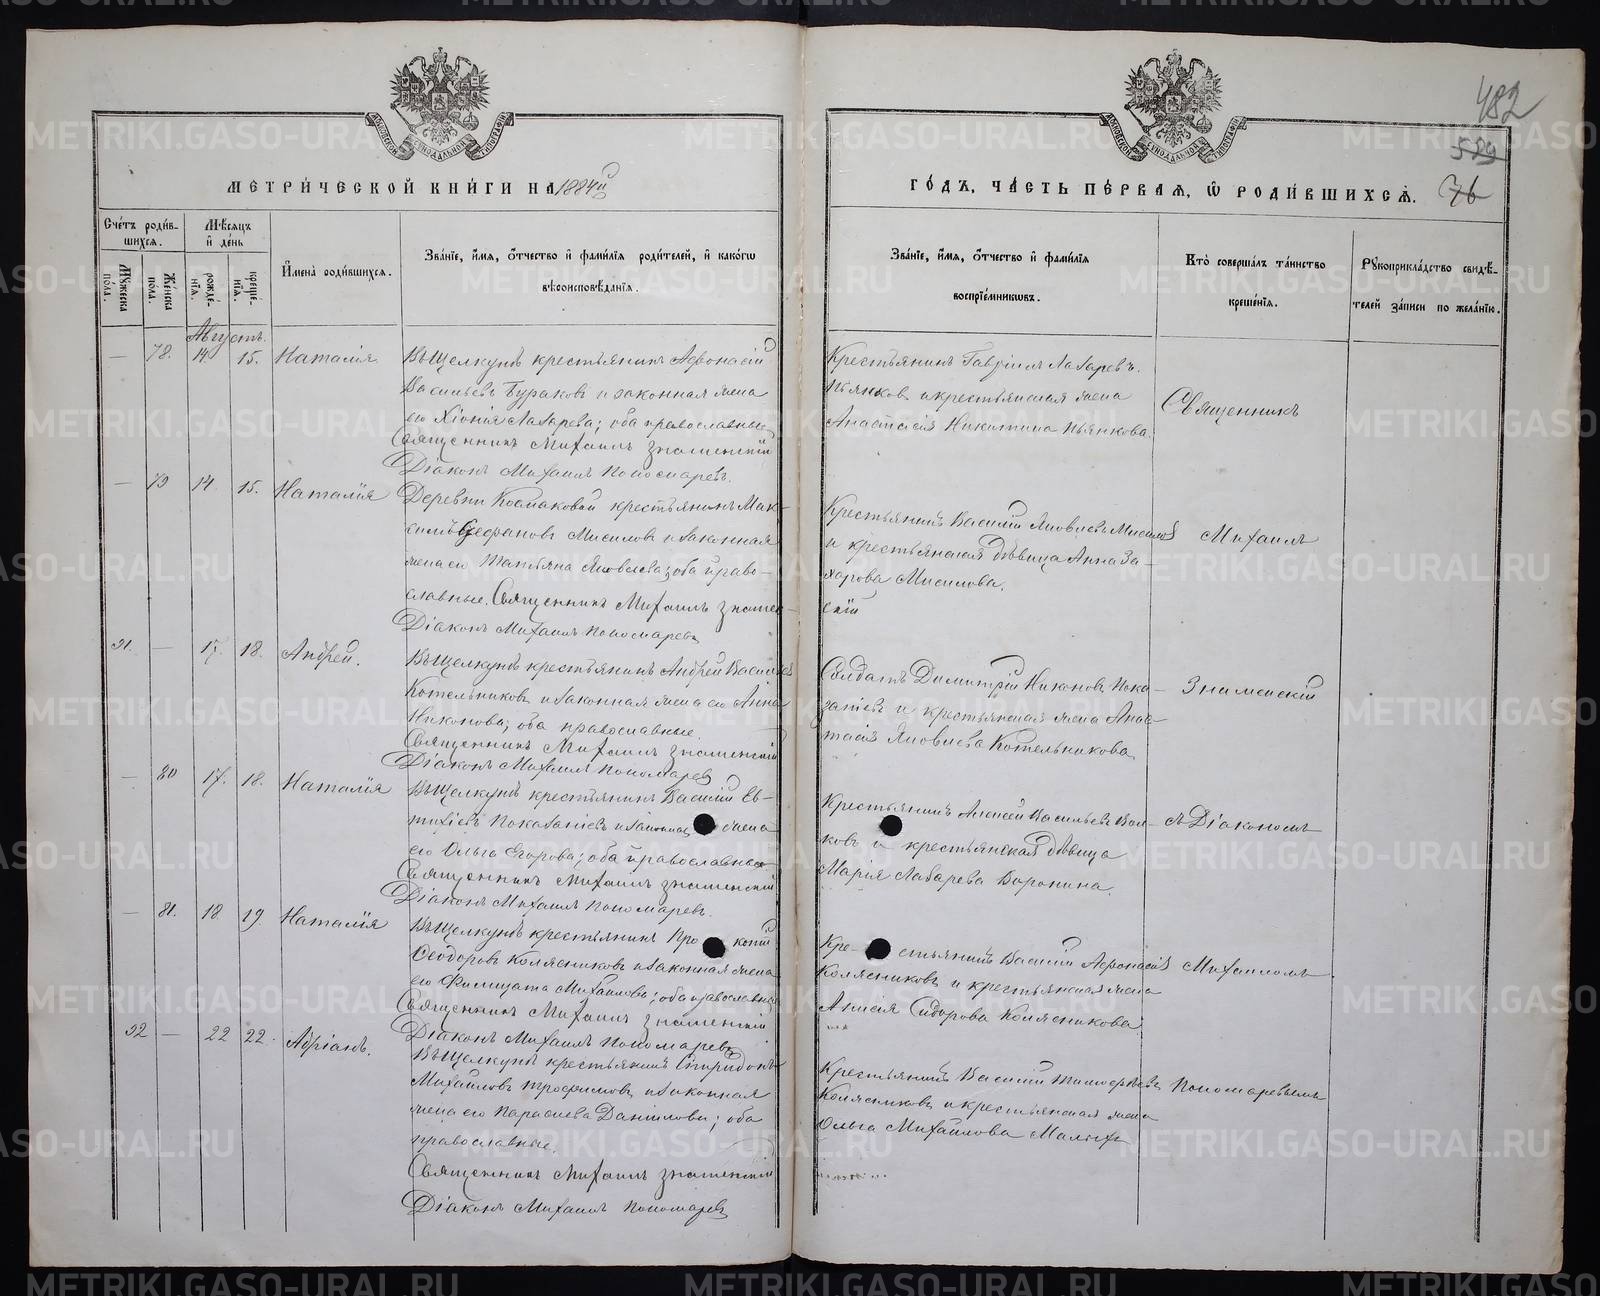 482
589
76
МЕТРИ́ЧЕСКОЙ КНИ́ГИ НА 1884й
ГО́ДЪ, ЧА́СТЬ ПЕ́РВАЯ, Ѡ РОДИ́ВШИХСѦ.
Сче́тъ роди́в-
шихся.
Мѣ́сяцъ
и҆ де́нь
Мꙋ́жеска по́ла.
Же́нска по́ла.
рожде́-нїѧ.
креще́-нїѧ.
И҆мена̀ роди́вшихся.
Зва́нїе, и҆́мѧ, ѻ҆́тчество и҆ фами́лїѧ роди́телей, и҆ како́гѡ
вѣроисповѣ́данїѧ.
Зва́нїе, и҆́мѧ, ѻ҆́тчество и҆ фами́лїѧ
воспрїе́мникѡвъ.
Кто̀ соверша́лъ та́инство
креще́нїѧ.
Рꙋкоприкла́дство свидѣ́-
телей за́писи по жела́нїю.
Августъ.
— 78. 14. 15. Наталія
Въ Щелкунѣ крестьянинъ Афонасій
Васильевъ Бураковъ и законная жена
его Хіонія Лазарева; оба православные
Священникъ Михаилъ Знаменскій
Діаконъ Михаилъ Пономаревъ.
Крестьянинъ Гавріилъ Лазаревъ.
Пьянковъ и крестьянская жена
Анастасія Никитина Пьянкова.
Священникъ
— 79 14. 15. Наталія
Деревни Космаковой крестьянинъ Мак-
симъ Стефановъ Мисиловъ и законная
жена его Татьяна Яковлева; оба право-
славные. Священникъ Михаилъ Знамен-
скій
Діаконъ Михаилъ Пономаревъ
Крестьянинъ Василій Яковлевъ Мисиловъ
и крестьянская дѣвица Анна За-
харова Мисилова.
Михаилъ
91. — 17. 18. Андрей.
Въ Щелкунѣ крестьянинъ Андрей Васильевъ
Котельниковъ и законная жена его Анна
Никонова; оба православные.
Священникъ Михаилъ Знаменскій
Діаконъ Михаилъ Пономаревъ
Солдатъ Димитрій Никоновъ Пока-
заніевъ и крестьянская жена Анас-
тасія Яковлева Котельникова
Знаменскій
— 80 17. 18. Наталія
Въ Щелкунѣ крестьянинъ Василій Ев-
тихіевъ Показаніевъ и законная жена
его Ольга Егорова; оба православные
Священникъ Михаилъ Знаменскій
Діаконъ Михаилъ Пономаревъ.
Крестьянинъ Алексѣй Васильевъ Вол-
ковъ и крестьянская дѣвица
Марія Лазарева Воронина.
съ Діакономъ
— 81. 18. 19. Наталія
Въ Щелкунѣ крестьянинъ Прокопій
Ѳеодоровъ Колясниковъ и законная жена
его Филицата Михайлова; оба православные
Священникъ Михаилъ Знаменскій
Діаконъ Михаилъ Пономаревъ
Крестьянинъ Василій Афонасіевъ
Колясниковъ и крестьянская жена
Анисія Сидорова Колясникова
Михаиломъ
92 — 22 22. Адріанъ.
Въ Щелкунѣ крестьянинъ Спиридонъ
Михайловъ Трофимовъ и законная
жена его Параскева Даніилова; оба
православные.
Священникъ Михаилъ Знаменскій
Діаконъ Михаилъ Пономаревъ
Крестьянинъ Василій Тимоѳѣевъ
Колясниковъ и крестьянская жена
Ольга Михайлова Малыхъ
Пономаревымъ
METRIKI.GASO-URAL.RU